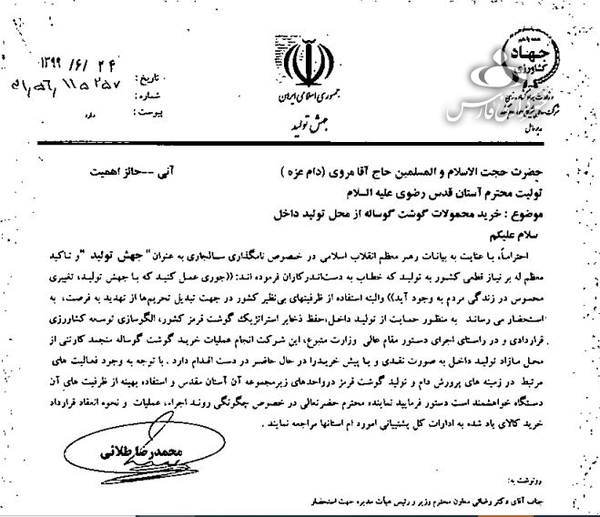 ۱۳۹۹/۶/۲۴
تاریخ :
شماره :
پیوست : دارد
جمهوری اسلامی ایران
جهش تولید
جهاد کشاورزی
خبرگزاری فارس
مدیرعامل
آنی --حائز اهمیت
حضرت حجت الاسلام و المسلمین حاج آقا مروی (دام عزه )
تولیت محترم آستان قدس رضوی علیه السلام
موضوع : خرید محمولات گوشت گوساله از محل تولید داخل
سلام علیکم
احتراماً، با عنایت به بیانات رهبر معظم انقلاب اسلامی در خصوص نامگذاری سالجاری به عنوان "جهش تولید "و تاکید
معظم له بر نیاز قطعی کشور به تولید که خطاب به دست‌اندرکاران فرموده اند: ((جوری عمل کنید که با جهش تولید، تغییری
محسوس در زندگی مردم به وجود آید)) والبته استفاده از ظرفیتهای بی‌نظیر کشور در جهت تبدیل تحریم‌ها از تهدید به فرصت، به
استحضار می رساند به منظور حمایت از تولید داخل،حفظ ذخایر استراتژیک گوشت قرمز کشور، الگوسازی توسعه کشاورزی
قراردادی و در راستای اجرای دستور مقام عالی وزارت متبوع، این شرکت انجام عملیات خرید گوشت گوساله منجمد کارتنی از
محل مازاد تولید داخل به صورت نقدی و یا پیش خریدرا در حال حاضر در دست اقدام دارد . با توجه به وجود فعالیت های
مرتبط در زمینه های پرورش دام و تولید گوشت قرمز درواحدهای زیرمجموعه آن آستان مقدس و استفاده بهینه از ظرفیت های آن
دستگاه خواهشمند است دستور فرمایید نماینده محترم حضرتعالی در خصوص چگونگی روند اجراء، عملیات و نحوه انعقاد قرارداد
خرید کالای یاد شده به ادارات کل پشتیبانی امورد ام استانها مراجعه نمایند .
محمدرضا طلائی
رونوشت به:
جناب آقای دکتر رضائی معاون محترم وزیر و رئیس هیأت مدیره جهت استحضار